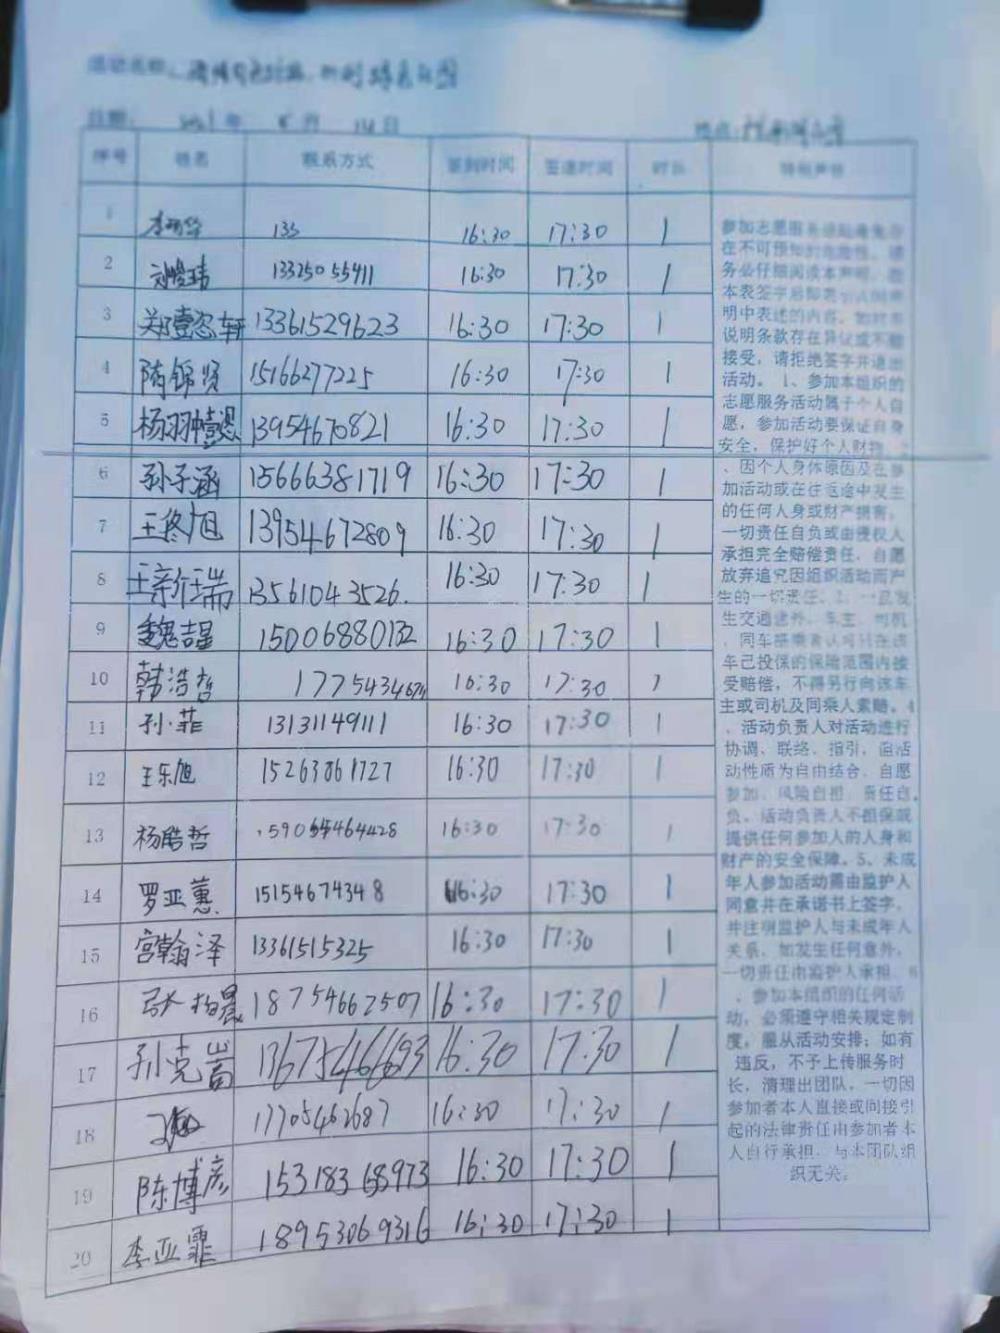 活动名称：
日期： 2021年 8月 14日 地点：
序号 姓名 联系方式 签到时间 签退时间 时长 特别声明
1 李 135 16:30 17:30 1
2 刘 13325055411 16:30 17:30 1
3 郑壹忿轩 13361529623 16:30 17:30 1
4 隋锦贤 15166277225 16:30 17:30 1
5 杨翀懿恩 13954670821 16:30 17:30 1
6 孙子涵 15666381719 16:30 17:30 1
7 王佟旭 13954672809 16:30 17:30 1
8 王新瑞 13561043526. 16:30 17:30 1
9 魏喆 15006880132 16:30 17:30 1
10 韩浩哲 1775434 16:30 17:30 1
11 孙菲 13131149111 16:30 17:30 1
12 王乐旭 15263861727 16:30 17:30 1
13 杨皓哲 16:30 17:30 1
14 罗亚蕙 15154674348 16:30 17:30 1
15 宫翰泽 13361515325 16:30 17:30 1
16 柏晨 18754662507 16:30 17:30 1
17 孙克嵩 13675466693 16:30 17:30 1
18 17705462687 16:30 17:30 1
19 陈博彦 15318368973 16:30 17:30 1
20 李亚霏 18953069316 16:30 17:30 1
参加志愿服务活动
在不可预知的危险性，请
务必仔细阅读本声明，在
本表签字后即
明中表述的内容，如对
说明条款存在异议或不能
接受，请拒绝签字并退出
活动。1、参加本组织的
志愿服务活动属于个人自
愿，参加活动要保证自身
安全，保护好个人财物。2
、因个人身体原因及在参
加活动或在往返途中发生
的任何人身或财产损害，
一切责任自负或由侵权人
承担完全赔偿责任，自愿
放弃追究因组织活动而产
生的一切责任。3、一旦发
生交通意外，车主、司机
、同车搭乘者认可只在该
车已投保的保险范围内接
受赔偿，不得另行向该车
主或司机及同乘人索赔。4
、活动负责人对活动进行
协调、联络、指引，但活
动性质为自由结合，自愿
参加，风险自担，责任自
负，活动负责人不担保或
提供任何参加人的人身和
财产的安全保障。5、未成
年人参加活动需由监护人
同意并在承诺书上签字，
并注明监护人与未成年人
关系，如发生任何意外，
一切责任由监护人承担。6
、参加本组织的任何活
动，必须遵守相关规定制
度，服从活动安排；如有
违反，不予上传服务时
长，清理出团队，一切因
参加者本人直接或间接引
起的法律责任由参加者本
人自行承担，与本团队组
织无关。